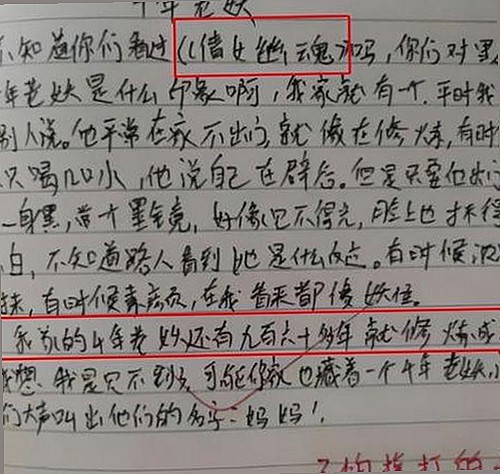 千年老妖
不知道你们看过《倩女幽魂》吗,你们对黑
年老妖是什么印象啊,我家就有一个.平时我
别人说。他平常在家不出门,就像在修炼,有时
只喝几口水,他说自己在辟谷。但是只要他出门
一身黑,带个墨镜,好像见不得光,脸上也抹得
白,不知道路人看到他是什么反应。有时候
抹,有时候素颜,在我看来都像妖怪。
我家的千年老妖还有九百六十多年就修炼成
我想,我是见不到了,可能你家也藏着一个千年老妖,
们大声叫出他们的名字:妈妈!